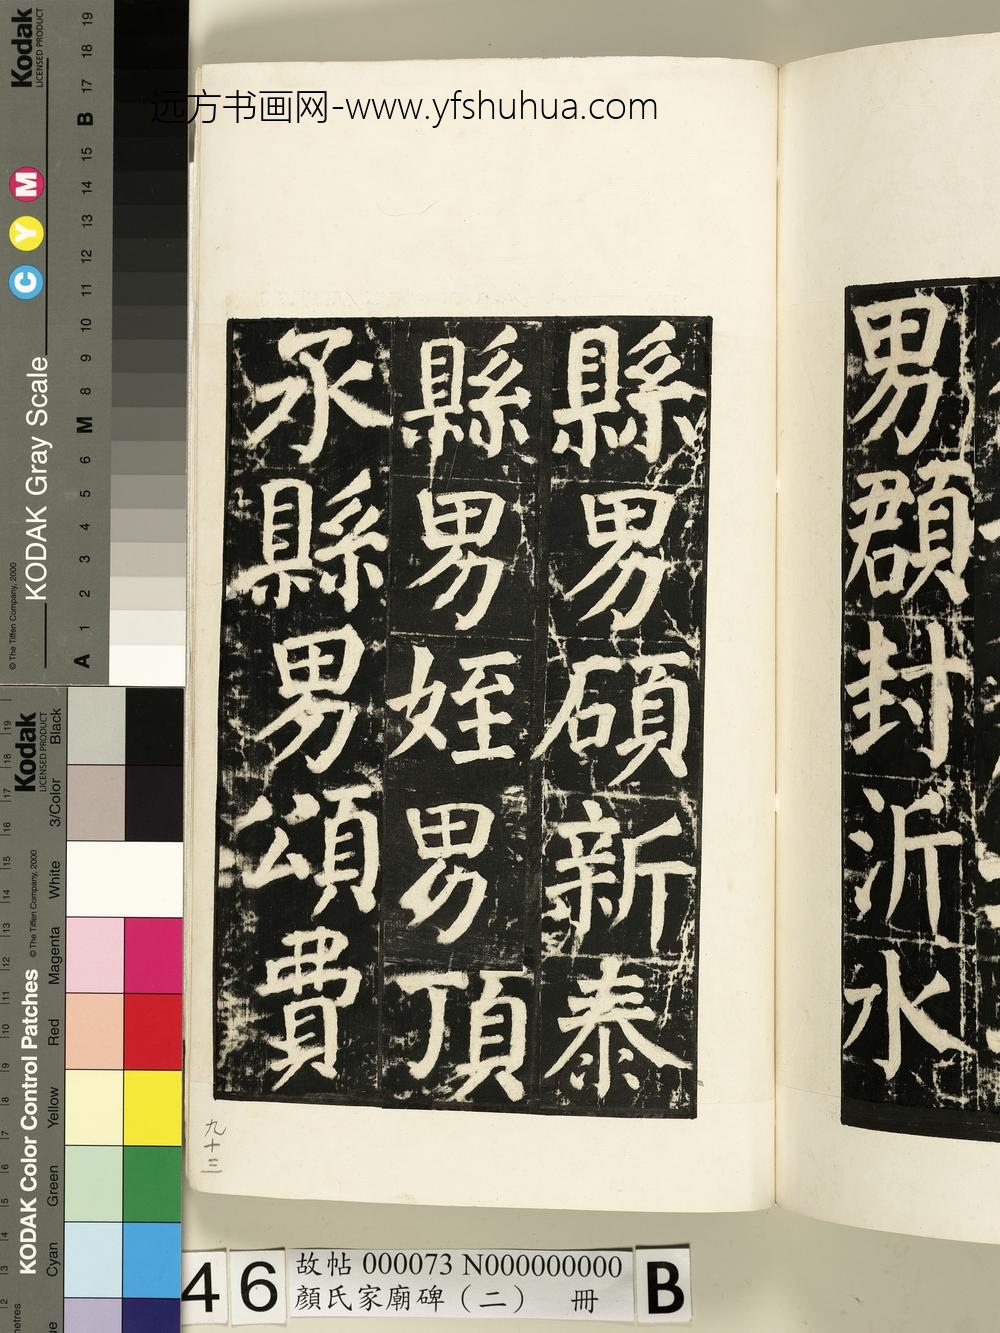 远方书画网-www.yfshuhua.com
男頵封沂水
縣男碩新泰
縣男姪男頂
承縣男頌費
九十三
46
故帖 000073 N000000000
顏氏家廟碑（二） 冊
B
Kodak
LICENSED PRODUCT
KODAK Gray Scale
© The Tiffen Company, 2000
C Y M
A 1 2 3 4 5 6 M 8 9 10 11 12 13 14 15 B 17 18 19
Kodak
LICENSED PRODUCT
KODAK Color Control Patches
© The Tiffen Company, 2000
Cyan Green Yellow Red Magenta White 3/Color Black
2 3 4 5 6 7 8 9 10 11 12 13 14 15 16 17 18 19